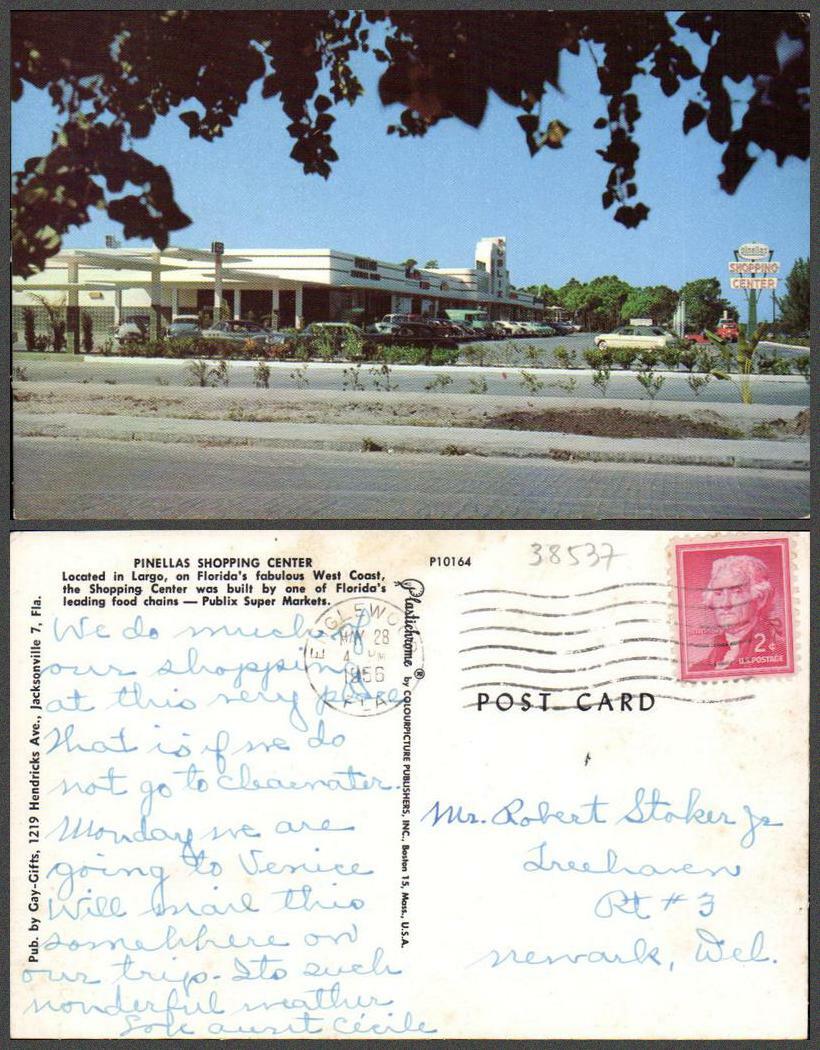 PINELLAS
PUBLIX
pinellas
SHOPPING
CENTER
PINELLAS SHOPPING CENTER
Located in Largo, on Florida's fabulous West Coast,
the Shopping Center was built by one of Florida's
leading food chains — Publix Super Markets.
P10164
38537
ENGLEWOOD
MAY 28
4 PM
1956
FLA.
2¢
U.S. POSTAGE
Pub. by Gay-Gifts, 1219 Hendricks Ave., Jacksonville 7, Fla.
We do much of
our shopping
at this very place
that is if we do
not go to Clearwater.
Monday we are
going to Venice
Will mail this
somewhere on
our trip. Its such
wonderful weather
Love aunt Cécile
Plastichrome ® by COLOURPICTURE PUBLISHERS, INC., Boston 15, Mass., U.S.A.
POST CARD
Mr. Robert Stoker Jr
Treehaven
Rt # 3
Newark, Del.